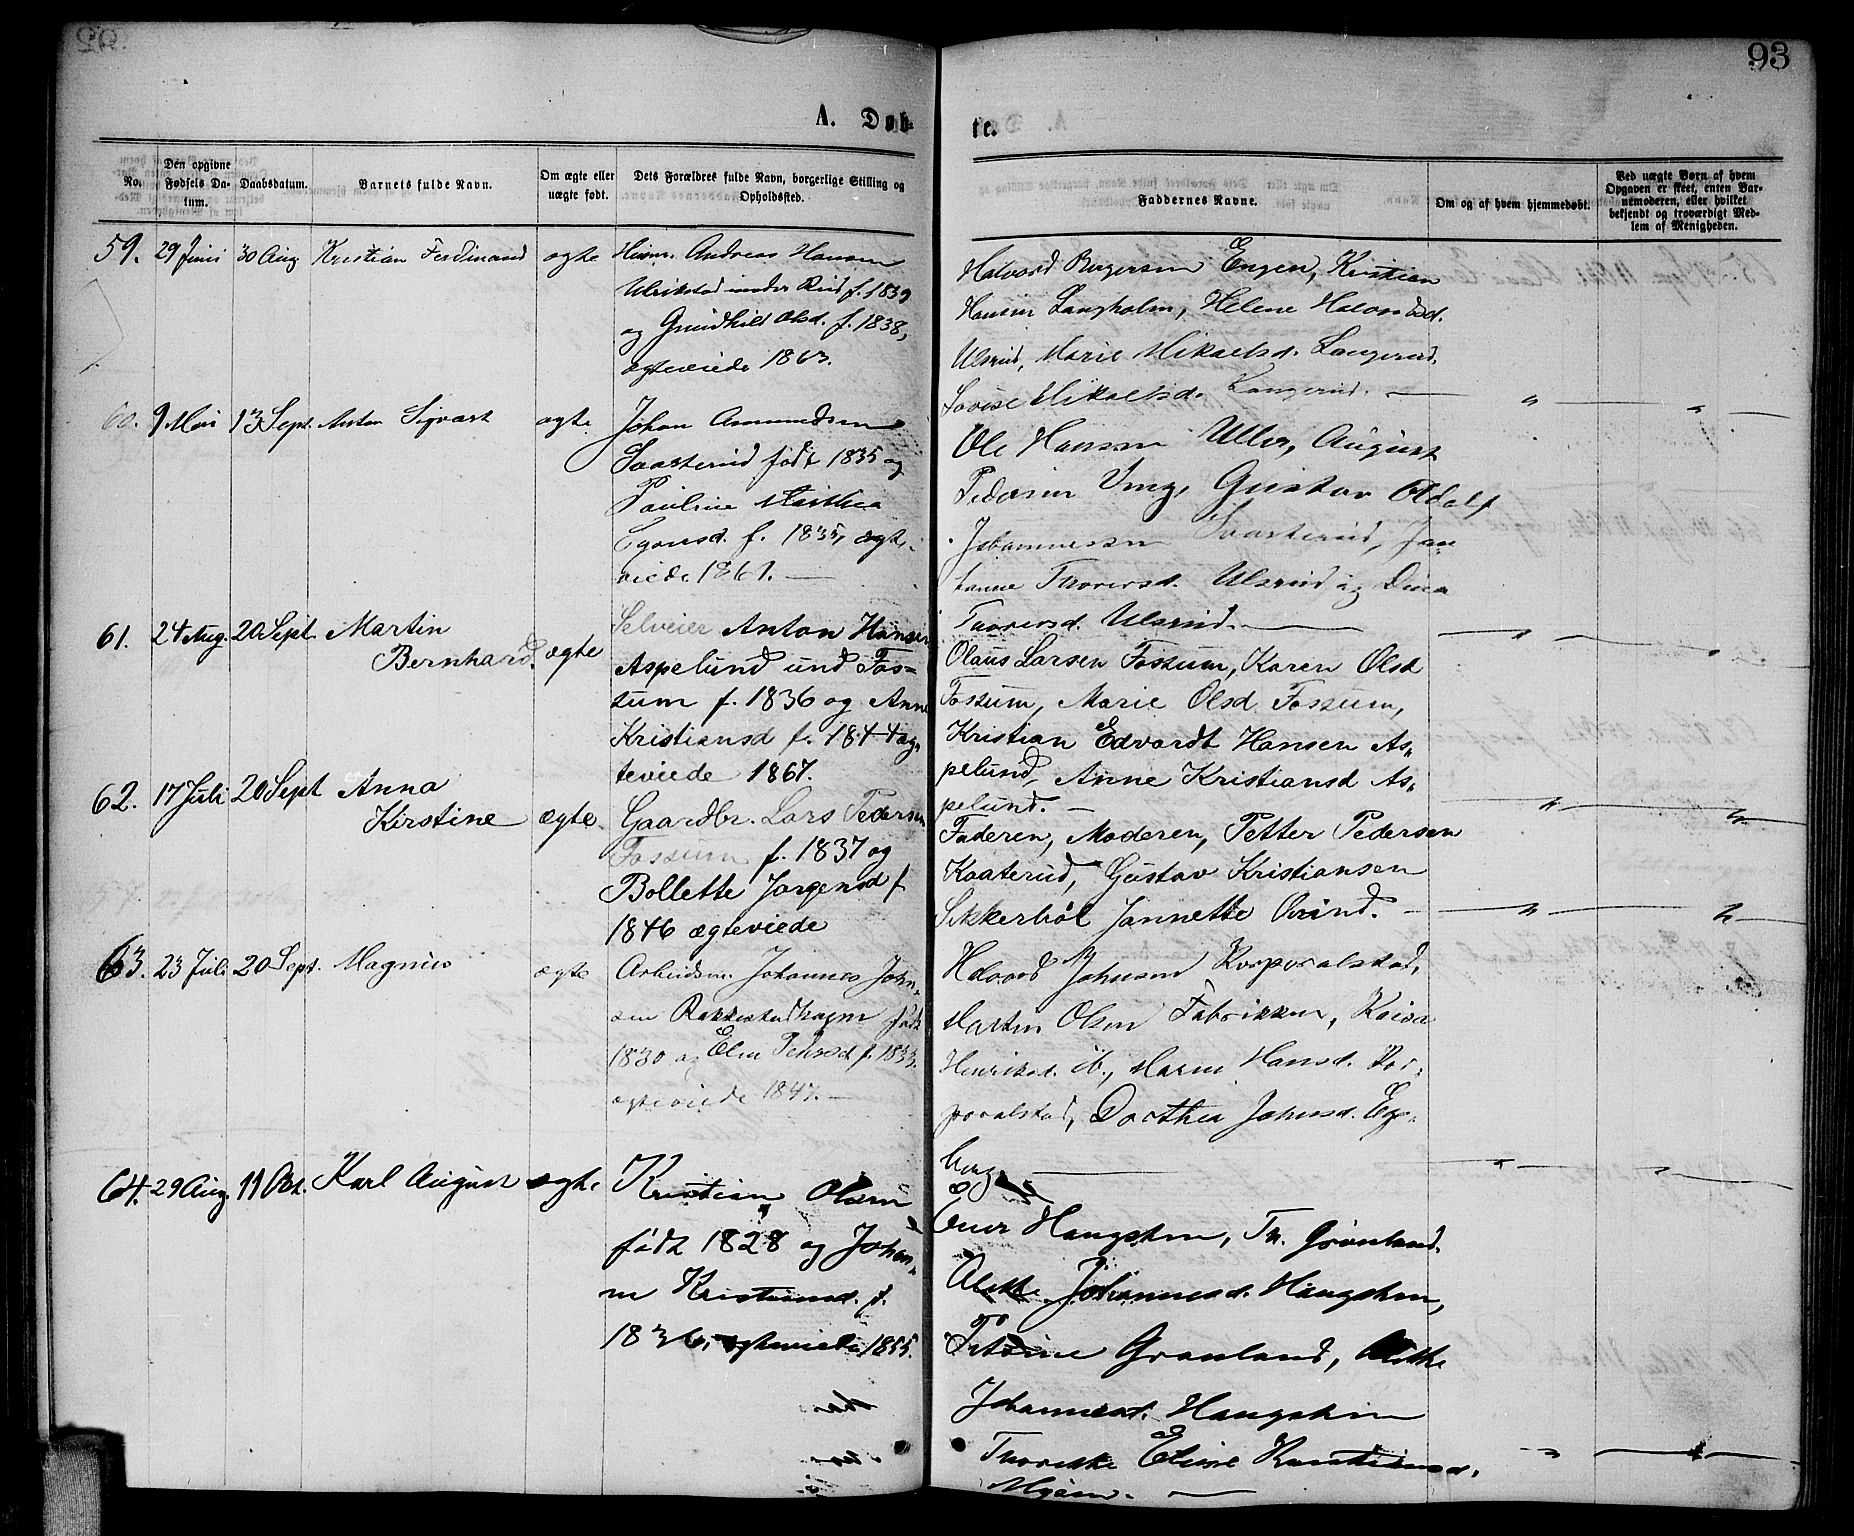 93
A. Døb-
te.
No.
Den opgivne Fødsels Datum.
Daabsdatum.
Barnets fulde Navn.
Om ægte eller uægte født.
Dets Forældres fulde Navn, borgerlige Stilling og Opholdssted.
Faddernes Navne.
Om og af hvem hjemmedøbt.
Ved uægte Børn af hvem Opgaven er skeet, enten Barnemoderen, eller hvilket bekjendt og troværdigt Medlem af Menigheden.
59. 29 Juni 30 Aug Kristian Ferdinand ægte
Husm. Andreas Hansen
Ulrikstad under Rud f. 1839
og Gundhild Olsd. f. 1838,
ægteviede 1863.
Halvord Birgersen Engen, Kristian
Hansen Langholm, Helene Halvordsd.
Ulsrud, Marie Mikaelsd. Langerud,
Lovise Mikaelsd. Langerud. — " "
60. 9 Mai 13 Sept. Anton Sigvart ægte
Johan Amundsen
Svarterud født 1835 og
Pauline Marthea
f. 1835, ægte-
viede 1861. —
Ole Hansen August
Pedersen Gustav Adolf
Johannessen Svarterud,
Thorersd. Ulsrud og Dina
Thorersd. Ulsrud. — " "
61. 24 Aug. 20 Sept. Martin
Bernhard. ægte
Selveier Anton Hansen
Aspelund und Fos-
sum f. 1836 og Anne
Kristiansd f. 1844 æg-
teviede 1867.
Olaus Larsen Fossum, Karen Olsd
Fossum, Marie Olsd. Fossum,
Kristian Edvardt Hansen As-
pelund, Anne Kristiansd As-
pelund. — " "
62. 17 Juli 20 Sept Anna
Kirstine ægte.
Gaardbr. Lars Pedersen
Fossum f. 1837 og
Bollette Jørgensd f
1846 ægteviede
Faderen, Moderen, Petter Pedersen
Kaaterud, Gustav Kristiansen
Sikkerbøl Jannette — " "
63. 23 Juli 20 Sept. Magnus ægte
Arbeidsm. Johannes John-
sen født
1830 og Elen f. 1833.
ægteviede 1847. —
Halvord Johnsen Korporalstad,
Martin Olsen Fabrikken,
Henriksd. ib., Maren Hansd. Kor-
poralstad, Dorthea Johnsd. Eg-
berg — " "
64. 29 Aug. 11 Okt. Karl August ægte.
Kristian Olsen
født 1828 og Johan-
ne Kristiansd. f.
1836, ægteviede 1855.
Haugsten, Th. Grønland.
Johannesd. Haugsten,
Grønland,
Johannesd. Haugsten
Elisse Kristiansd.
Myren. — " "